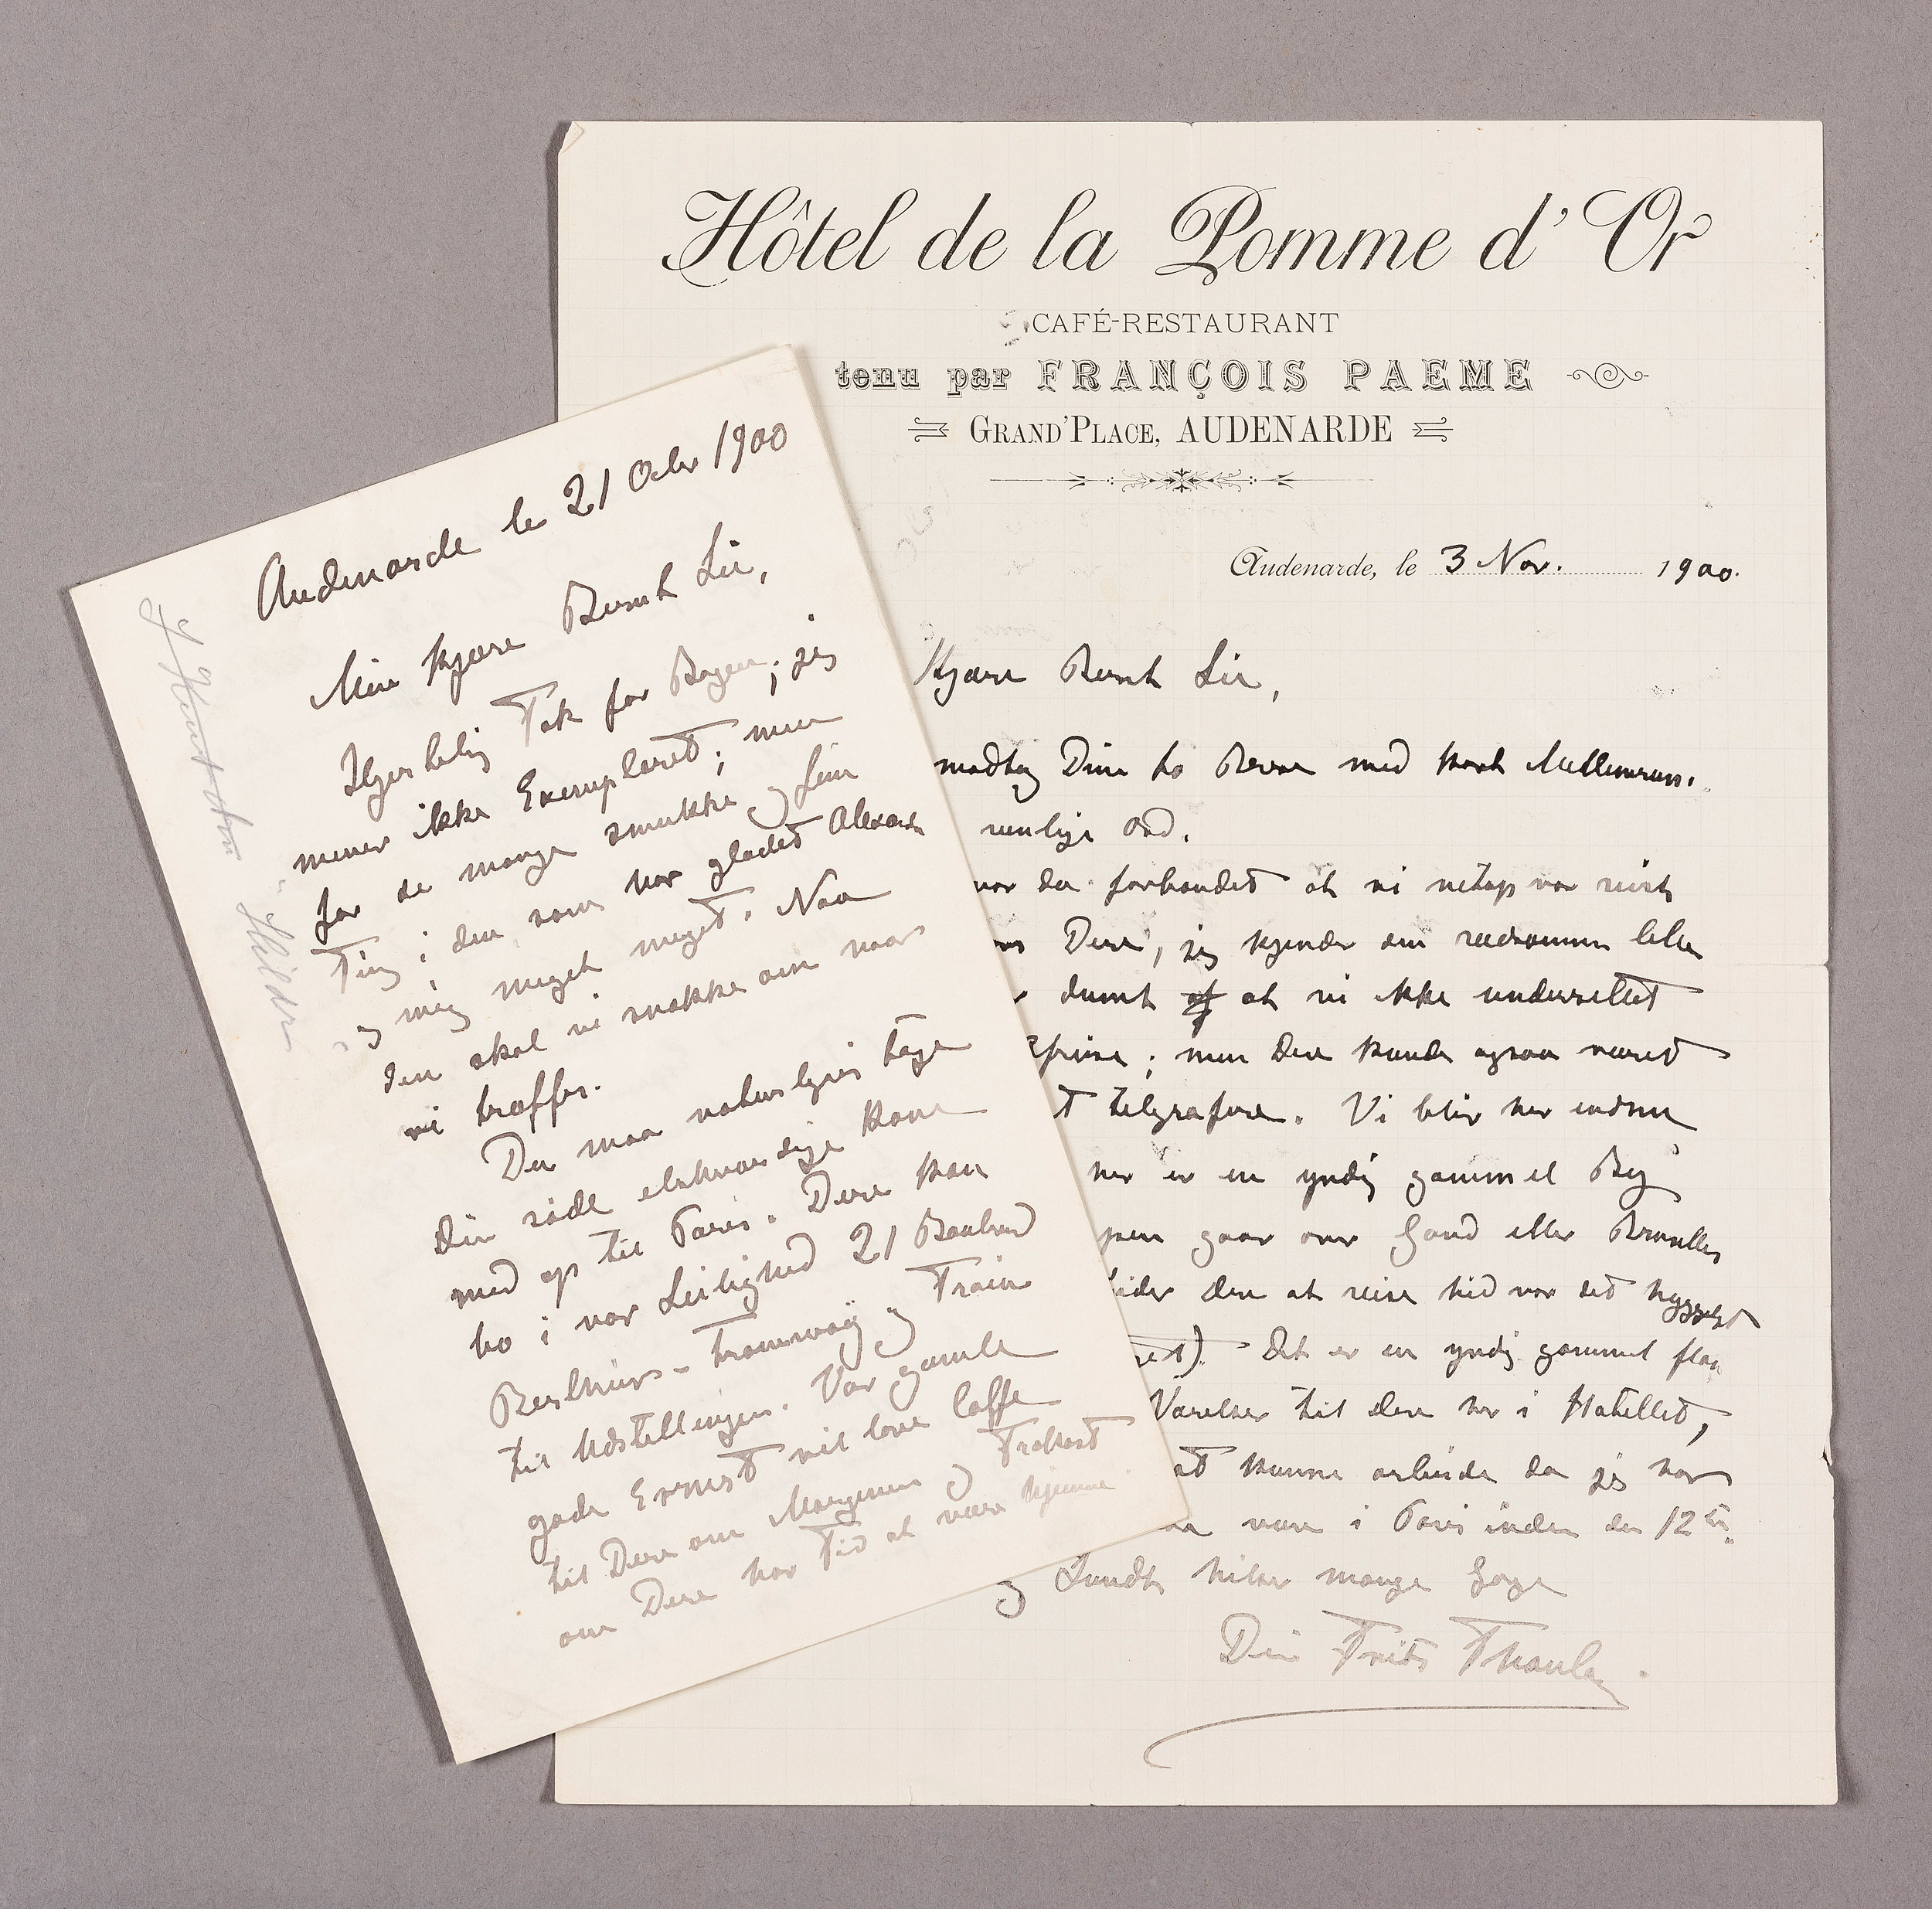 Hôtel de la Pomme d'Or
CAFÉ-RESTAURANT
tenu par FRANÇOIS PAEME
GRAND'PLACE, AUDENARDE
Audenarde, le 3 Nov. 1900.
Kjære Bernt Lie,
modtog Dine to Breve med
venlige Ord.
var da forbandet at vi netop var reist
Dere, jeg kjender en lille
dumt at vi ikke underrettet
; men Dere kunde ogsaa været
telegrafere. Vi blir her endnu
her er en yndig gammel By
gaar over Gand eller Bruxelles
Dere at reise hid var det hyggeligt
Det er en yndig gammel
Værelser til Dere her i Hotellet,
kunne arbeide da jeg har
være i Paris inden den 12te.
og hilser mange Gange
Din Frits Thaulow.
Audenarde le 21 Octbr 1900
Min kjære Bernt Lie,
Hjertelig Tak for Bogen; jeg
mener ikke Exemplaret; men
for de mange smukke og fine
Ting i den som har glædet Alexandra
og mig meget meget. Naa
den skal vi snakke om naar
vi træffes.
Du maa naturligvis tage
Din søde elskværdige Kone
med op til Paris. Dere kan
bo i vor Leilighed 21 Boulevard
Berthier - Tramway og Train
til Udstillingen. Vor gamle
gode Ernest vil lave Caffe
til Dere om Morgenen og Frokost
om Dere har Tid at være hjemme